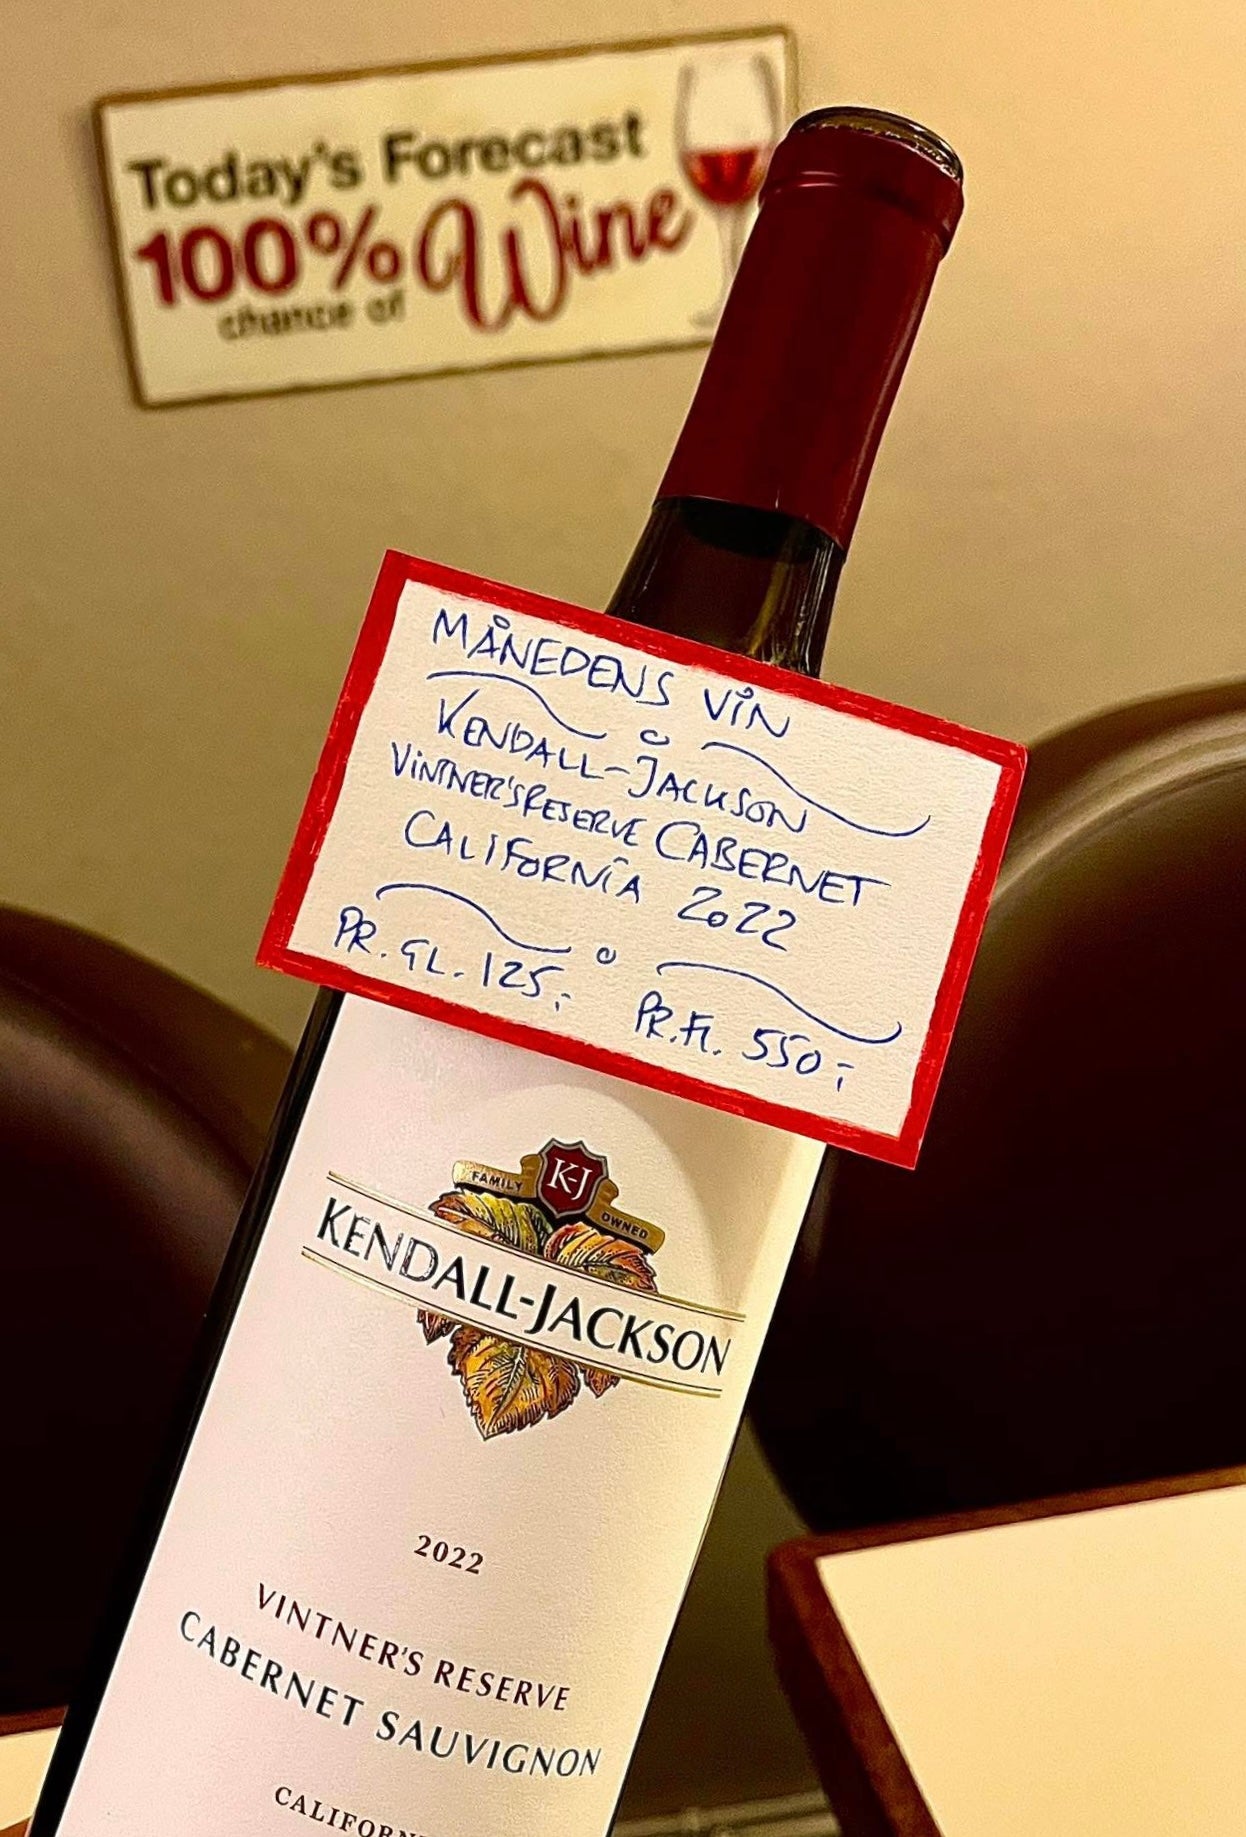 Today's Forecast
100%
chance of
Wine
MÅNEDENS VIN
KENDALL-JACKSON
VINTNER'S RESERVE CABERNET
CALIFORNIA 2022
PR. GL. 125,- PR. FL. 550,-
K-J
FAMILY OWNED
KENDALL-JACKSON
2022
VINTNER'S RESERVE
CABERNET SAUVIGNON